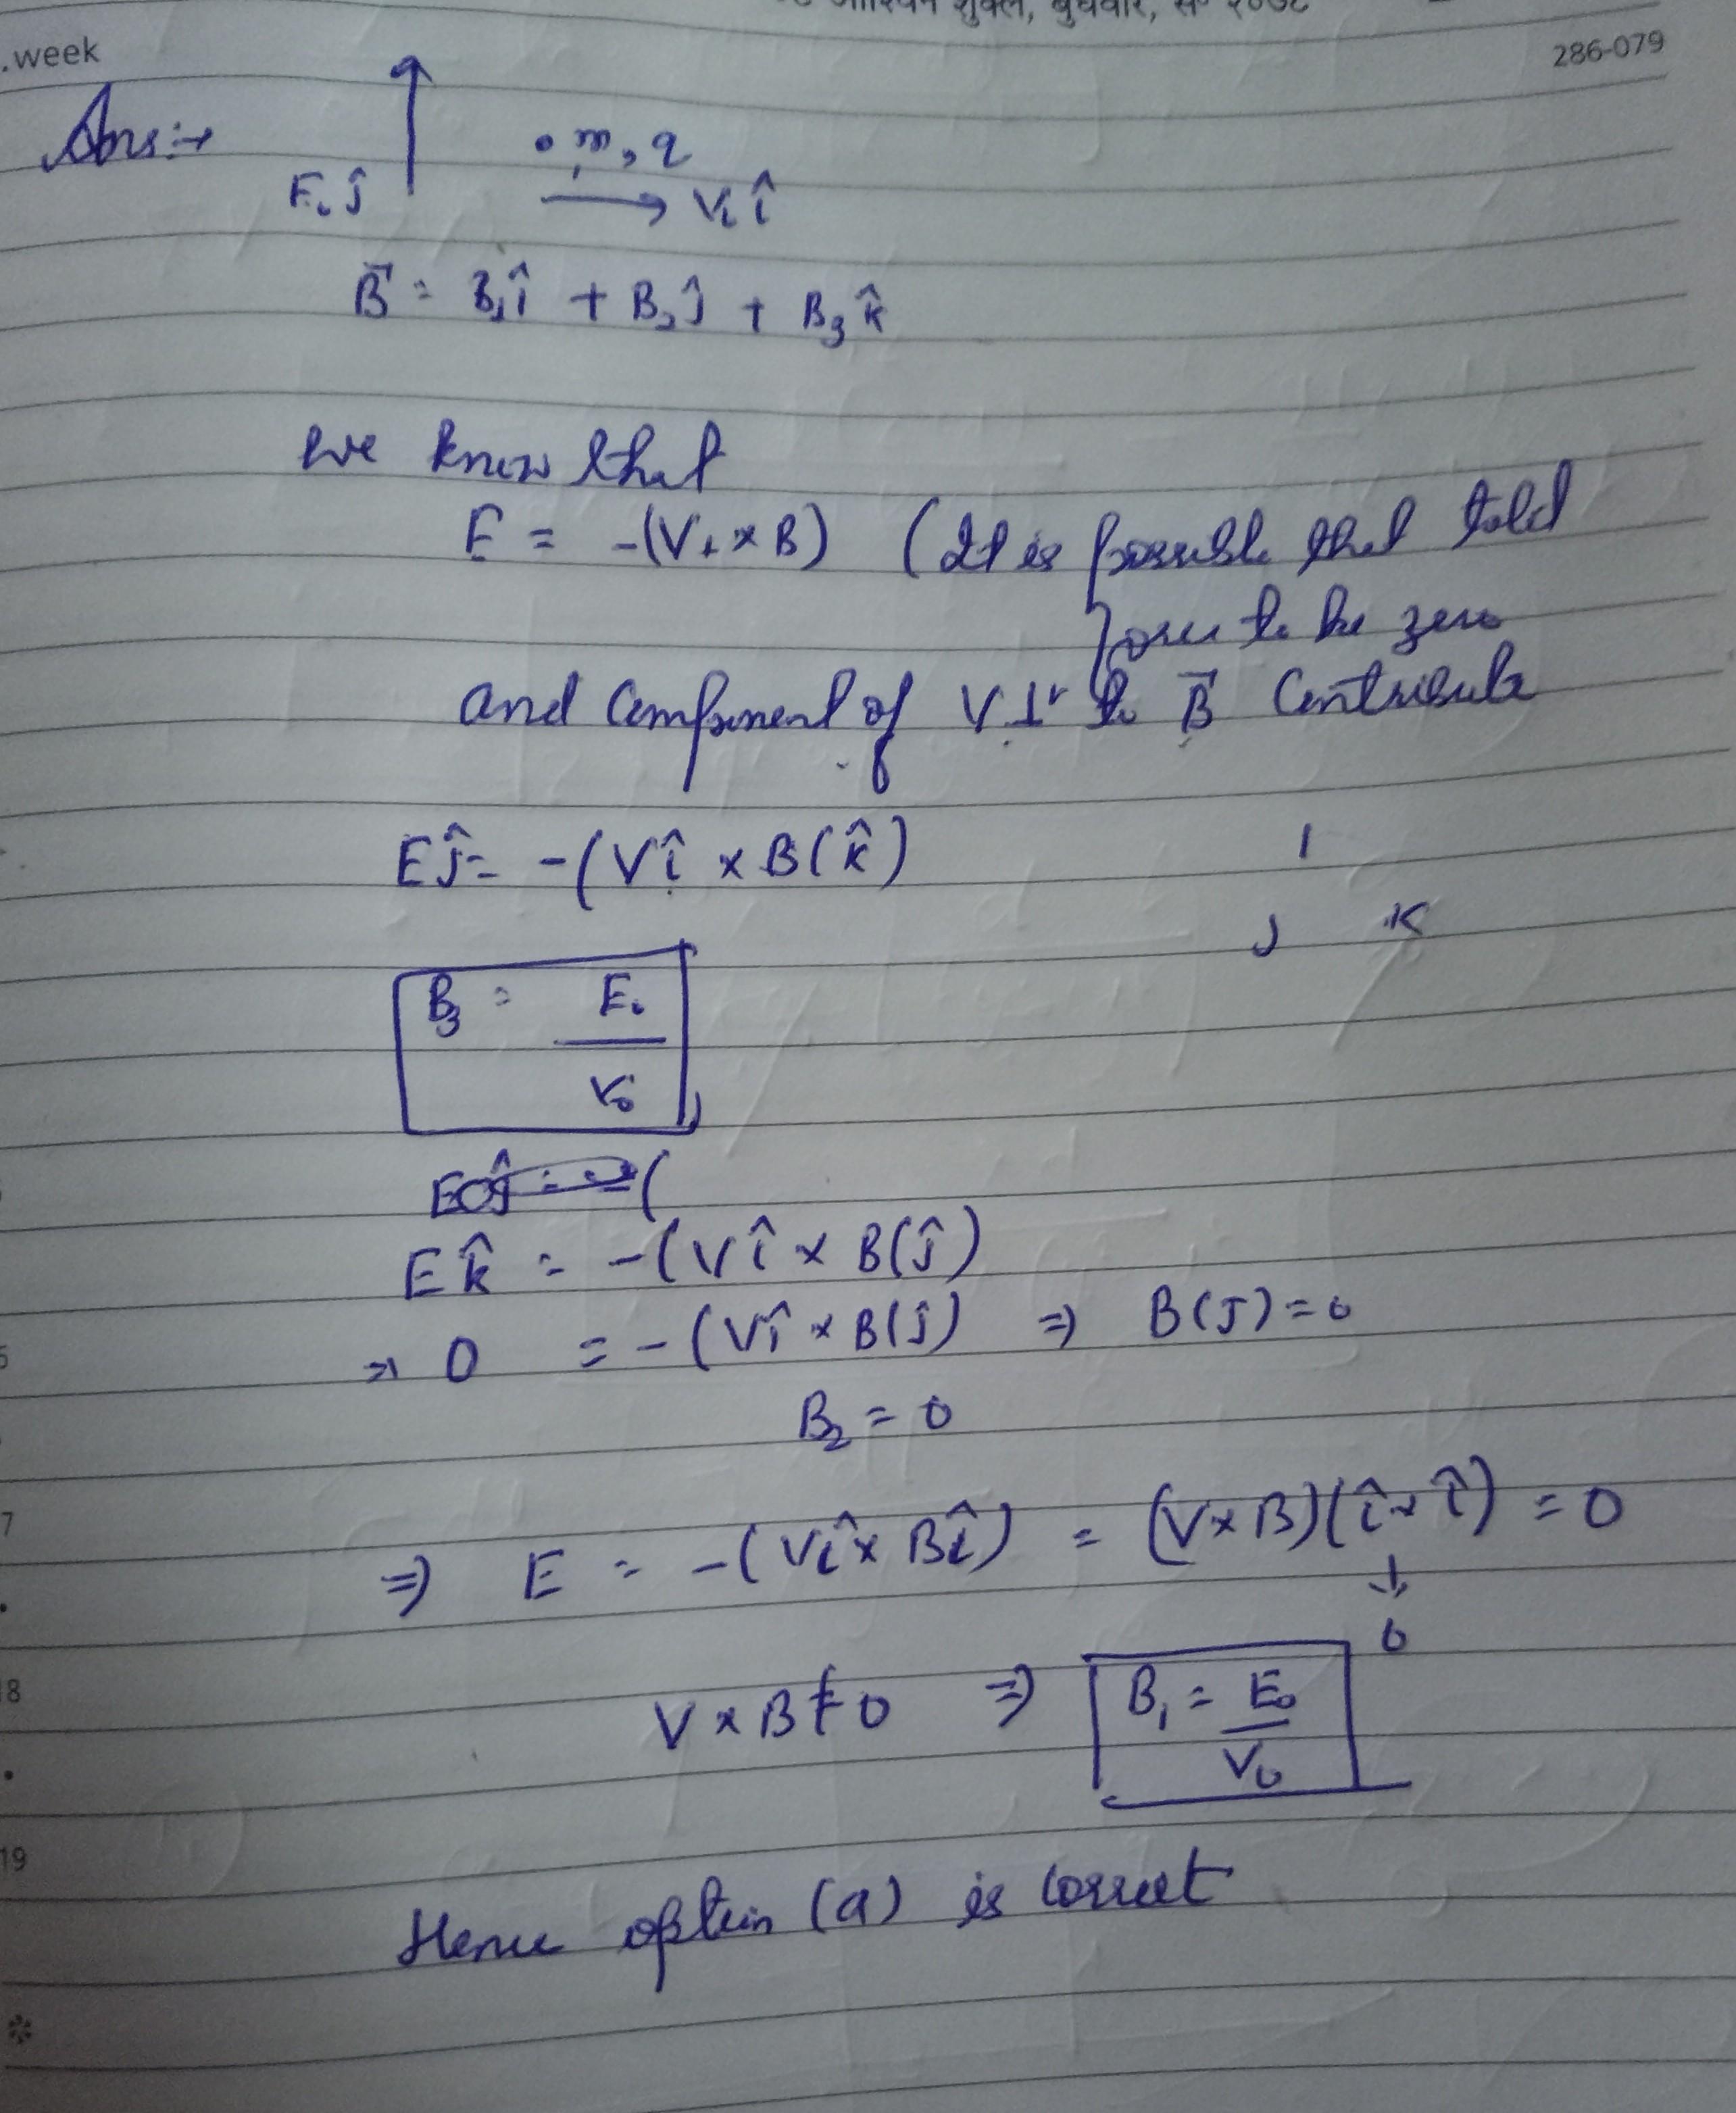 शुक्ल, बुधवार, सं० २०७८
.week
286-079
Ans:→
• m, q
E₀ ĵ
V₀ î
B⃗ = B₁î + B₂ĵ + B₃ k̂
We know that
E = -(V₊ × B) (It is possible that total
force to be zero
and component of V ⊥r to B⃗ Contribute
E ĵ = -(V î × B(k̂)
I
J K
B₃ = E₀
V₀
E k̂ = -(V î × B(ĵ)
⇒ 0 = -(V î × B(ĵ) ⇒ B(J) = 0
B₂ = 0
7
⇒ E = -(Vî × Bî) = (V×B)(î×î) = 0
↓
0
18
V × B ≠ 0 ⇒ B₁ = E₀
V₀
19
Hence option (a) is correct